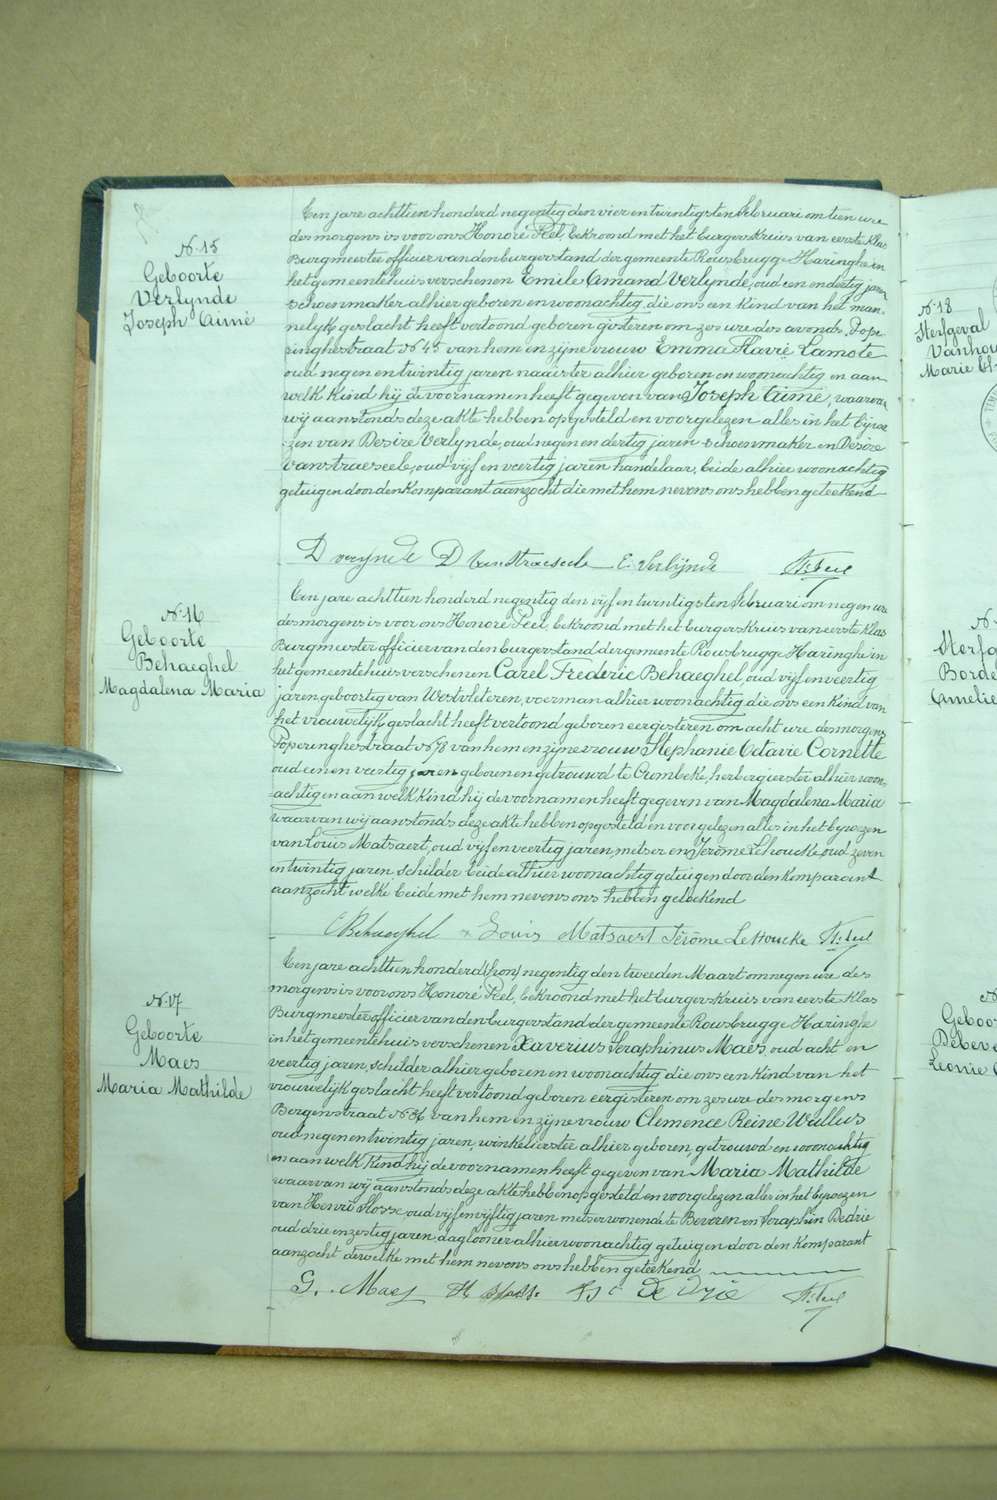 N. 15
Geboorte
Verlynde
Joseph Aimé
Een jare achttien honderd negentig den vier en twintigsten Februari om tien ure
des morgens is voor ons Honoré Peel, bekroond met het burgerskruis van eerste klas
Burgmeester officier van den burgerstand der gemeente Rousbrugge Haringhe in
het gemeentehuis verschenen Emile Amand Verlynde, oud en dertig jaren
schoenmaker alhier geboren en woonachtig die ons een kind van het man-
nelijk geslacht heeft vertoond geboren gisteren om zes ure des avonds, Pope
ringhestraat N. 45 van hem en zijne vrouw Emma Flavie Lamote
oud negen en twintig jaren naaister alhier geboren en woonachtig en aan
welk kind hij de voornamen heeft gegeven van Joseph Aimé, waarvan
wij aanstonds deze akte hebben opgesteld en voorgelezen alles in het bijwe
zen van Desiré Verlynde, oud negen en dertig jaren schoenmaker en Desiré
Vanstraeseele, oud vijf en veertig jaren handelaar, beide alhier woonachtig
getuigen door den komparant aanzocht die met hem nevens ons hebben geteekend
D Verlynde D Vanstraeseele E. Verlijnde H. Peel
N. 16
Geboorte
Behaeghel
Magdalena Maria
Een jare achttien honderd negentig den vijf en twintigsten Februari om negen ure
des morgens is voor ons Honoré Peel, bekroond met het burgerskruis van eerste klas
Burgmeester officier van den burgerstand der gemeente Rousbrugge Haringhe in
het gemeentehuis verschenen Carel Frederic Behaeghel, oud vijf en veertig
jaren geboortig van Westvleteren, voerman alhier woonachtig die ons een kind van
het vrouwelijk geslacht heeft vertoond geboren eergisteren om acht ure des morgens
Poperinghestraat N. 78 van hem en zijne vrouw Stephanie Octavie Cornette
oud een en veertig jaren geboren en getrouwd te Crombeke, herbergierster alhier woon-
achtig en aan welk kind hij de voornamen heeft gegeven van Magdalena Maria
waarvan wij aanstonds deze akte hebben opgesteld en voorgelezen alles in het bijwezen
van Louis Matsaert, oud vijf en veertig jaren, metser en Jerôme Lehoucke oud zeven
en twintig jaren, schilder beide alhier woonachtig getuigen door den komparant
aanzocht welke beide met hem nevens ons hebben geteekend
C Behaeghel Louis Matsaert Jérôme Lehoucke H. Peel
N. 17
Geboorte
Maes
Maria Mathilde
Een jare achttien honderd (hon) negentig den tweeden Maart om negen ure des
morgens is voor ons Honoré Peel, bekroond met het burgerskruis van eerste klas
Burgmeester officier van den burgerstand der gemeente Rousbrugge Haringhe
in het gemeentehuis verschenen Xaverius Seraphinus Maes, oud acht en
veertig jaren, schilder alhier geboren en woonachtig die ons een kind van het
vrouwelijk geslacht heeft vertoond geboren eergisteren om zes ure des morgens
Bergenstraat van hem en zijne vrouw Clemence Reine
oud negen en twintig jaren, winkelierster alhier geboren, getrouwd en woonachtig
en aan welk kind hij de voornamen heeft gegeven van Maria Mathilde
waarvan wij aanstonds deze akte hebben opgesteld en voorgelezen alles in het bijwezen
van Henri Slosse, oud vijf en vijftig jaren metser wonend te Beveren en Seraphin Dedrie
oud drie en zestig jaren, daglooner alhier woonachtig getuigen door den komparant
aanzocht dewelke met hem nevens ons hebben geteekend
S. Maes H Slosse H. Peel
N. 18
Sterfgeval
Vanhou
Marie
N.
Sterfg
Borde
Amelie
Geboor
Debeve
Leonie